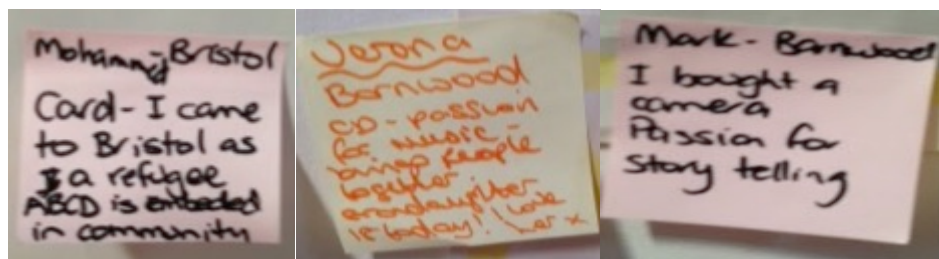 Mohammed-Bristol
Card- I came
to Bristol as
a refugee
ABCD is embeded
in community
Verona
Barnwood
CD - passion
for music -
brings people
together
granddaughter
is today! I love
her x
Mark - Barnwood
I bought a
camera
Passion for
story telling